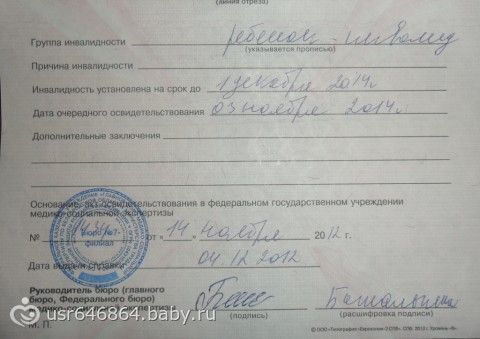 (линия отреза)
Группа инвалидности ребенок - инвалид
(указывается прописью)
Причина инвалидности
Инвалидность установлена на срок до 1 декабря 2014г.
Дата очередного освидетельствования 03 ноября 2014г.
Дополнительные заключения
Основание: акт освидетельствования в федеральном государственном учреждении
медико-социальной экспертизы
№ от "14" ноября 2012 г.
бюро №7-
филиал
Дата выдачи справки 04.12.2012
Руководитель бюро (главного
бюро, Федерального бюро)
медико-социальной экспертизы
(подпись) (расшифровка подписи)
М. П.
usr646864.baby.ru